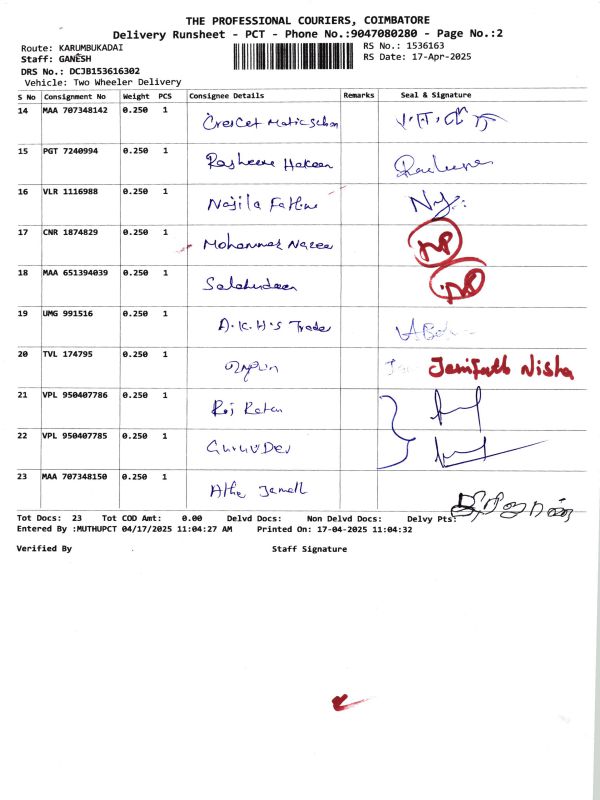 THE PROFESSIONAL COURIERS, COIMBATORE
Delivery Runsheet - PCT - Phone No.:9047080280 - Page No.:2
Route: KARUMBUKADAI RS No.: 1536163
Staff: GANESH RS Date: 17-Apr-2025
DRS No.: DCJB153616302
Vehicle: Two Wheeler Delivery
S No Consignment No Weight PCS Consignee Details Remarks Seal & Signature
14 MAA 707348142 0.250 1 Crescet Matric School
15 PGT 7240994 0.250 1 Rasheena Hakeem
16 VLR 1116988 0.250 1 Najila Fathima
17 CNR 1874829 0.250 1 Mohammad Nazeer NP
18 MAA 651394039 0.250 1 Salahudeen NP
19 UMG 991516 0.250 1 A.K.H's Trader
20 TVL 174795 0.250 1 Jenifath Nisha
21 VPL 950407786 0.250 1 Raj Ratan
22 VPL 950407785 0.250 1 Guru Dev
23 MAA 707348150 0.250 1 Athe Jamell
Tot Docs: 23 Tot COD Amt: 0.00 Delvd Docs: Non Delvd Docs: Delvy Pts:
Entered By :MUTHUPCT 04/17/2025 11:04:27 AM Printed On: 17-04-2025 11:04:32
Verified By Staff Signature